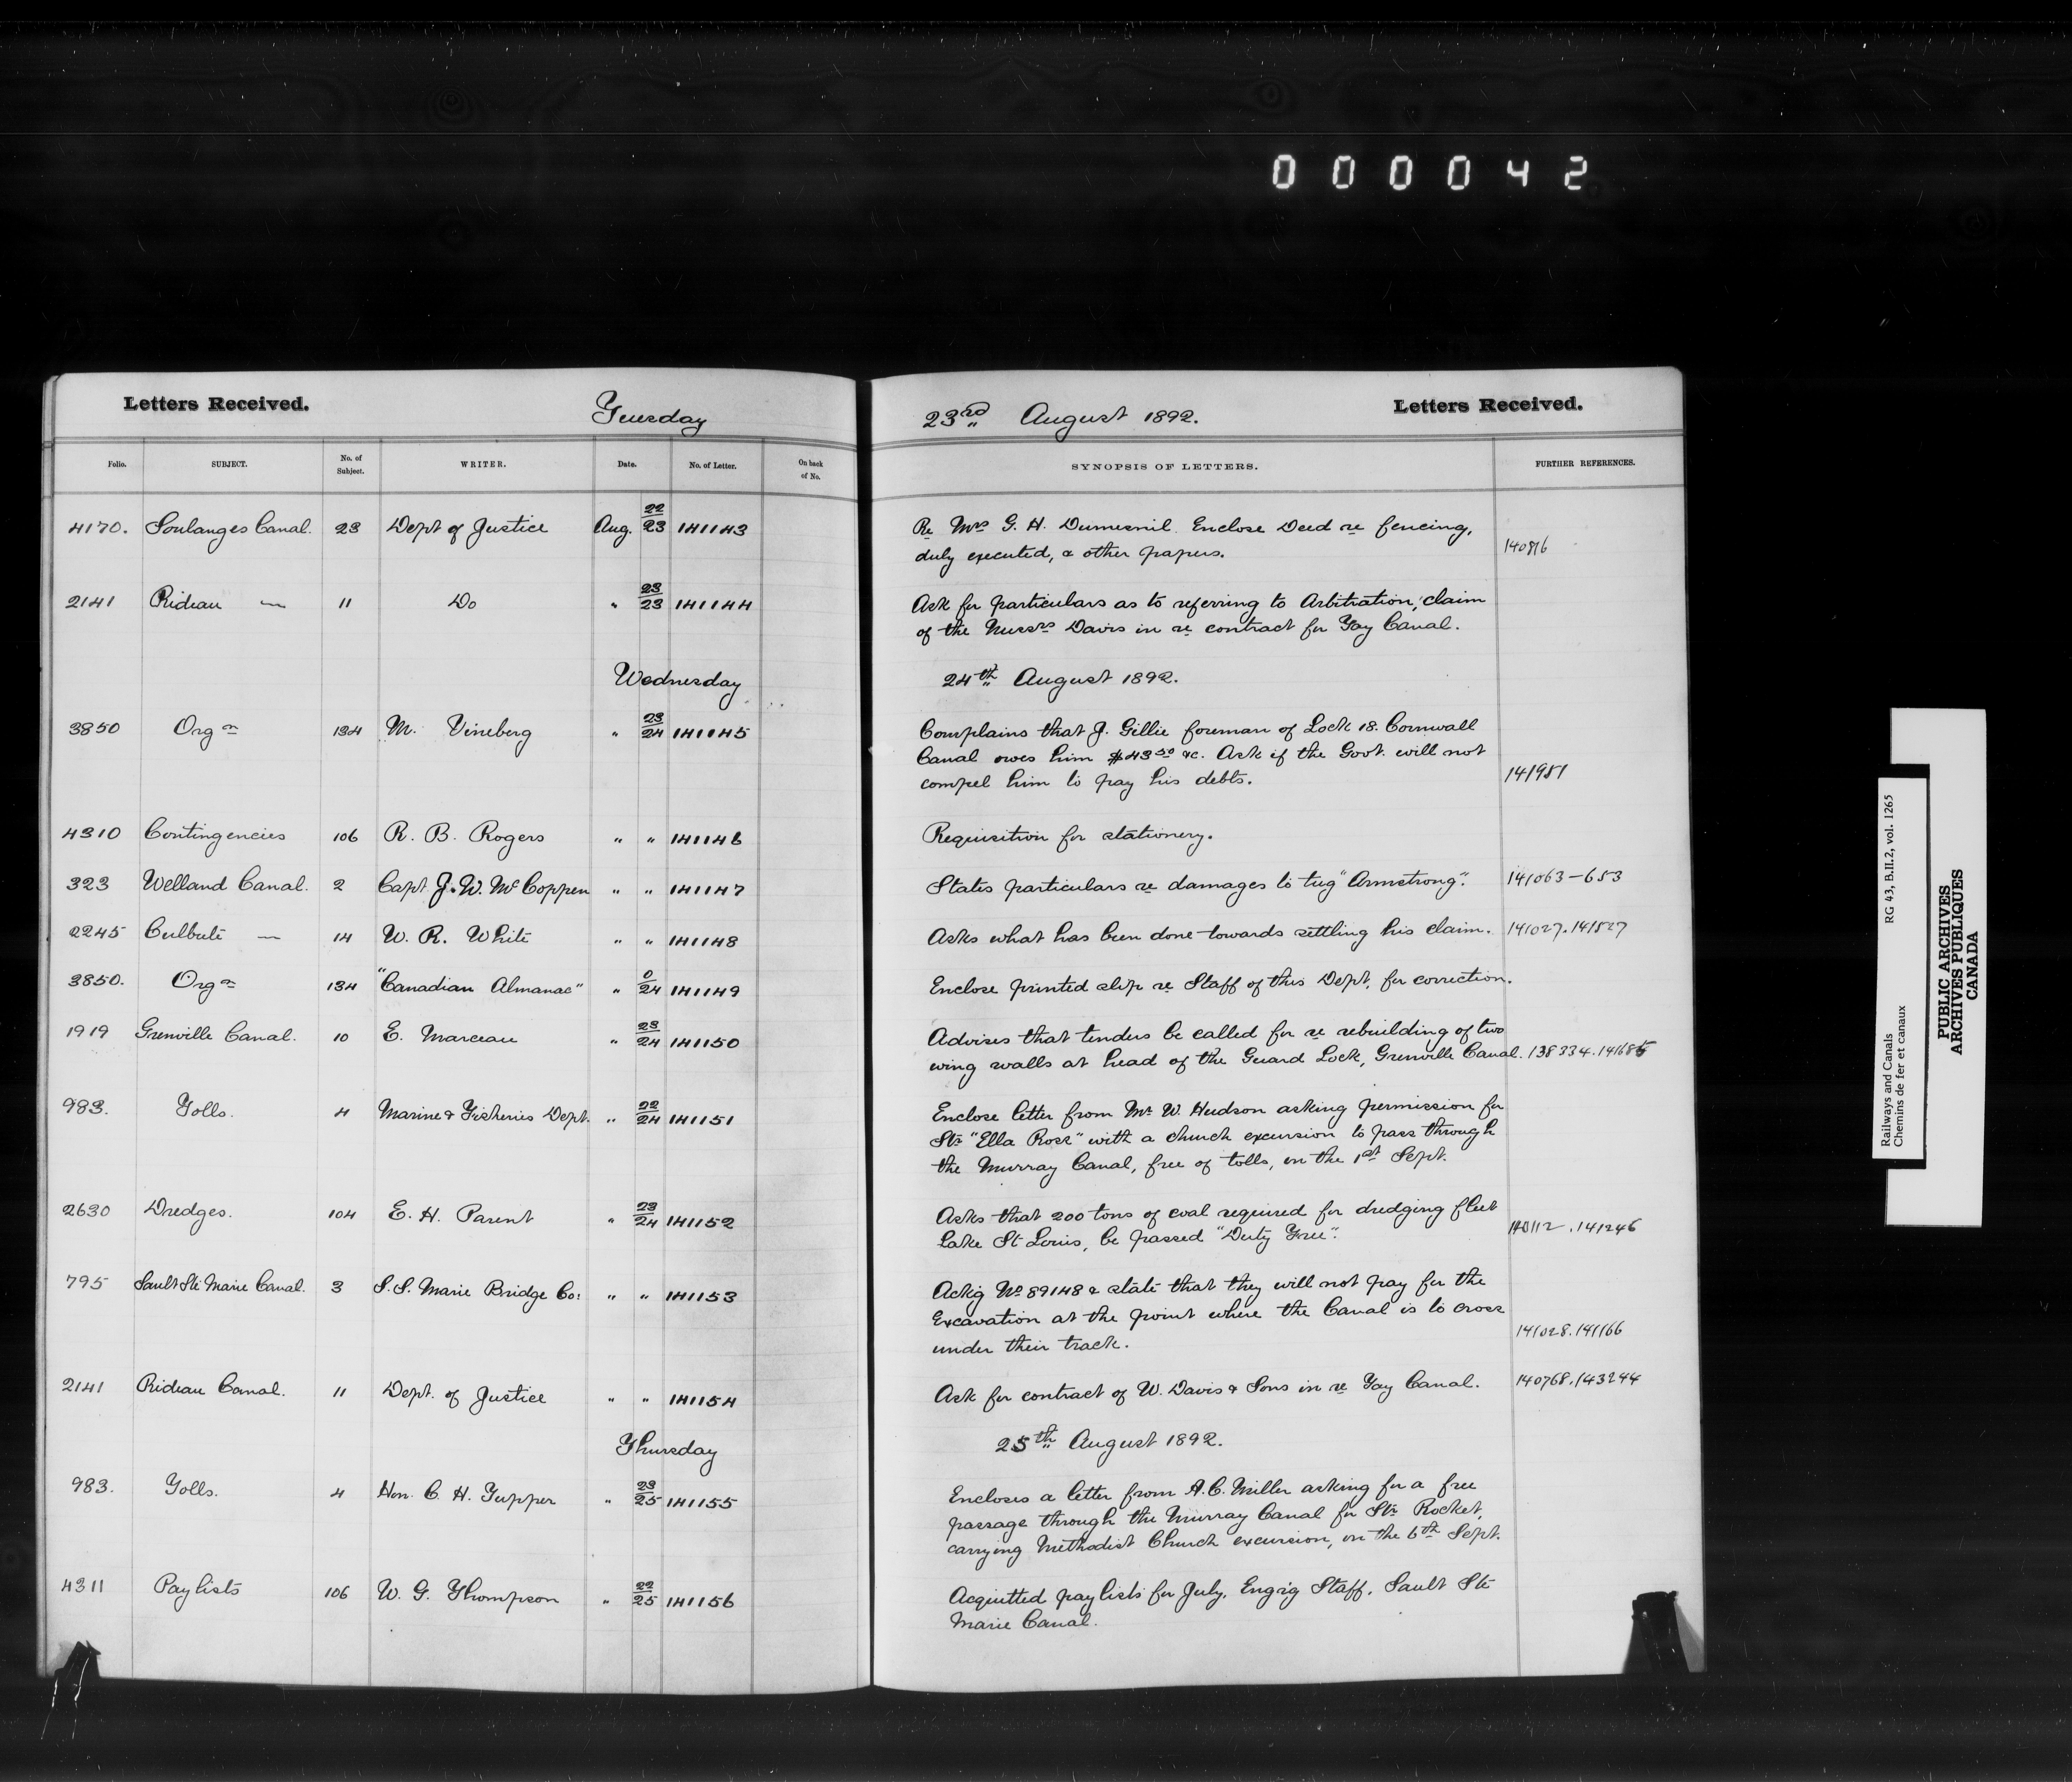 000042
Letters Received. Tuesday 23rd August 1892. Letters Received.
Folio. SUBJECT. No. of Subject. WRITER. Date. No. of Letter. On back of No. SYNOPSIS OF LETTERS. FURTHER REFERENCES.
4170. Soulanges Canal. 23 Dept of Justice Aug. 22/23 141143 Re Mrs G. H. Dumesnil. Enclose Deed re fencing,
duly executed, & other papers. 140816
2141 Rideau — 11 Do " 23/23 141144 Ask for particulars as to referring to Arbitration, claim
of the Messrs Davis in re contract for Tay Canal.
Wednesday 24th August 1892.
3850 Orgn 134 M. Vineberg " 23/24 141145 Complains that J. Gillie foreman of Lock 18. Cornwall
Canal owes him $43 50 &c. Ask if the Govt. will not
compel him to pay his debts. 141981
4310 Contingencies 106 R. B. Rogers " " 141146 Requisition for stationery.
323 Welland Canal. 2 Capt J. W. McCoppen " " 141147 States particulars re damages to tug "Armstrong". 141063-653
2245 Culbute — 14 W. R. White " " 141148 Asks what has been done towards settling his claim. 141027. 141827
3850. Orgn 134 "Canadian Almanac" " 0/24 141149 Enclose printed slip re Staff of this Dept. for correction.
1919 Grenville Canal. 10 E. Marceau " 23/24 141150 Advises that tenders be called for re rebuilding of two
wing walls at head of the Guard Lock, Grenville Canal. 138334. 141685
983. Tolls. 4 Marine & Fisheries Dept. " 22/24 141151 Enclose letter from Mr W. Hudson asking permission for
Str "Ella Ross" with a church excursion to pass through
the Murray Canal, free of tolls, on the 1st Sept.
2630 Dredges. 104 E. H. Parent " 23/24 141152 Asks that 200 tons of coal required for dredging fleet
Lake St Louis, be passed "Duty Free". 140112. 141246
795 Sault Ste Marie Canal. 3 S.S. Marie Bridge Co: " " 141153 Ackg No 89148 & state that they will not pay for the
Excavation at the point where the Canal is to cross
under their track. 141028. 141166
2141 Rideau Canal. 11 Dept. of Justice " " 141154 Ask for contract of W. Davis & Sons in re Tay Canal. 140768. 143244
Thursday 25th August 1892.
983. Tolls. 4 Hon. C. H. Tupper " 23/25 141155 Encloses a letter from A. C. Miller asking for a free
passage through the Murray Canal for Str Rocket,
carrying Methodist Church excursion, on the 6th Sept.
4311 Paylists 106 W. G. Thompson " 22/25 141156 Acquitted paylists for July, Engrg Staff, Sault Ste
Marie Canal.
Railways and Canals RG 43, B.II.2, vol. 1265
Chemins de fer et canaux
PUBLIC ARCHIVES
ARCHIVES PUBLIQUES
CANADA